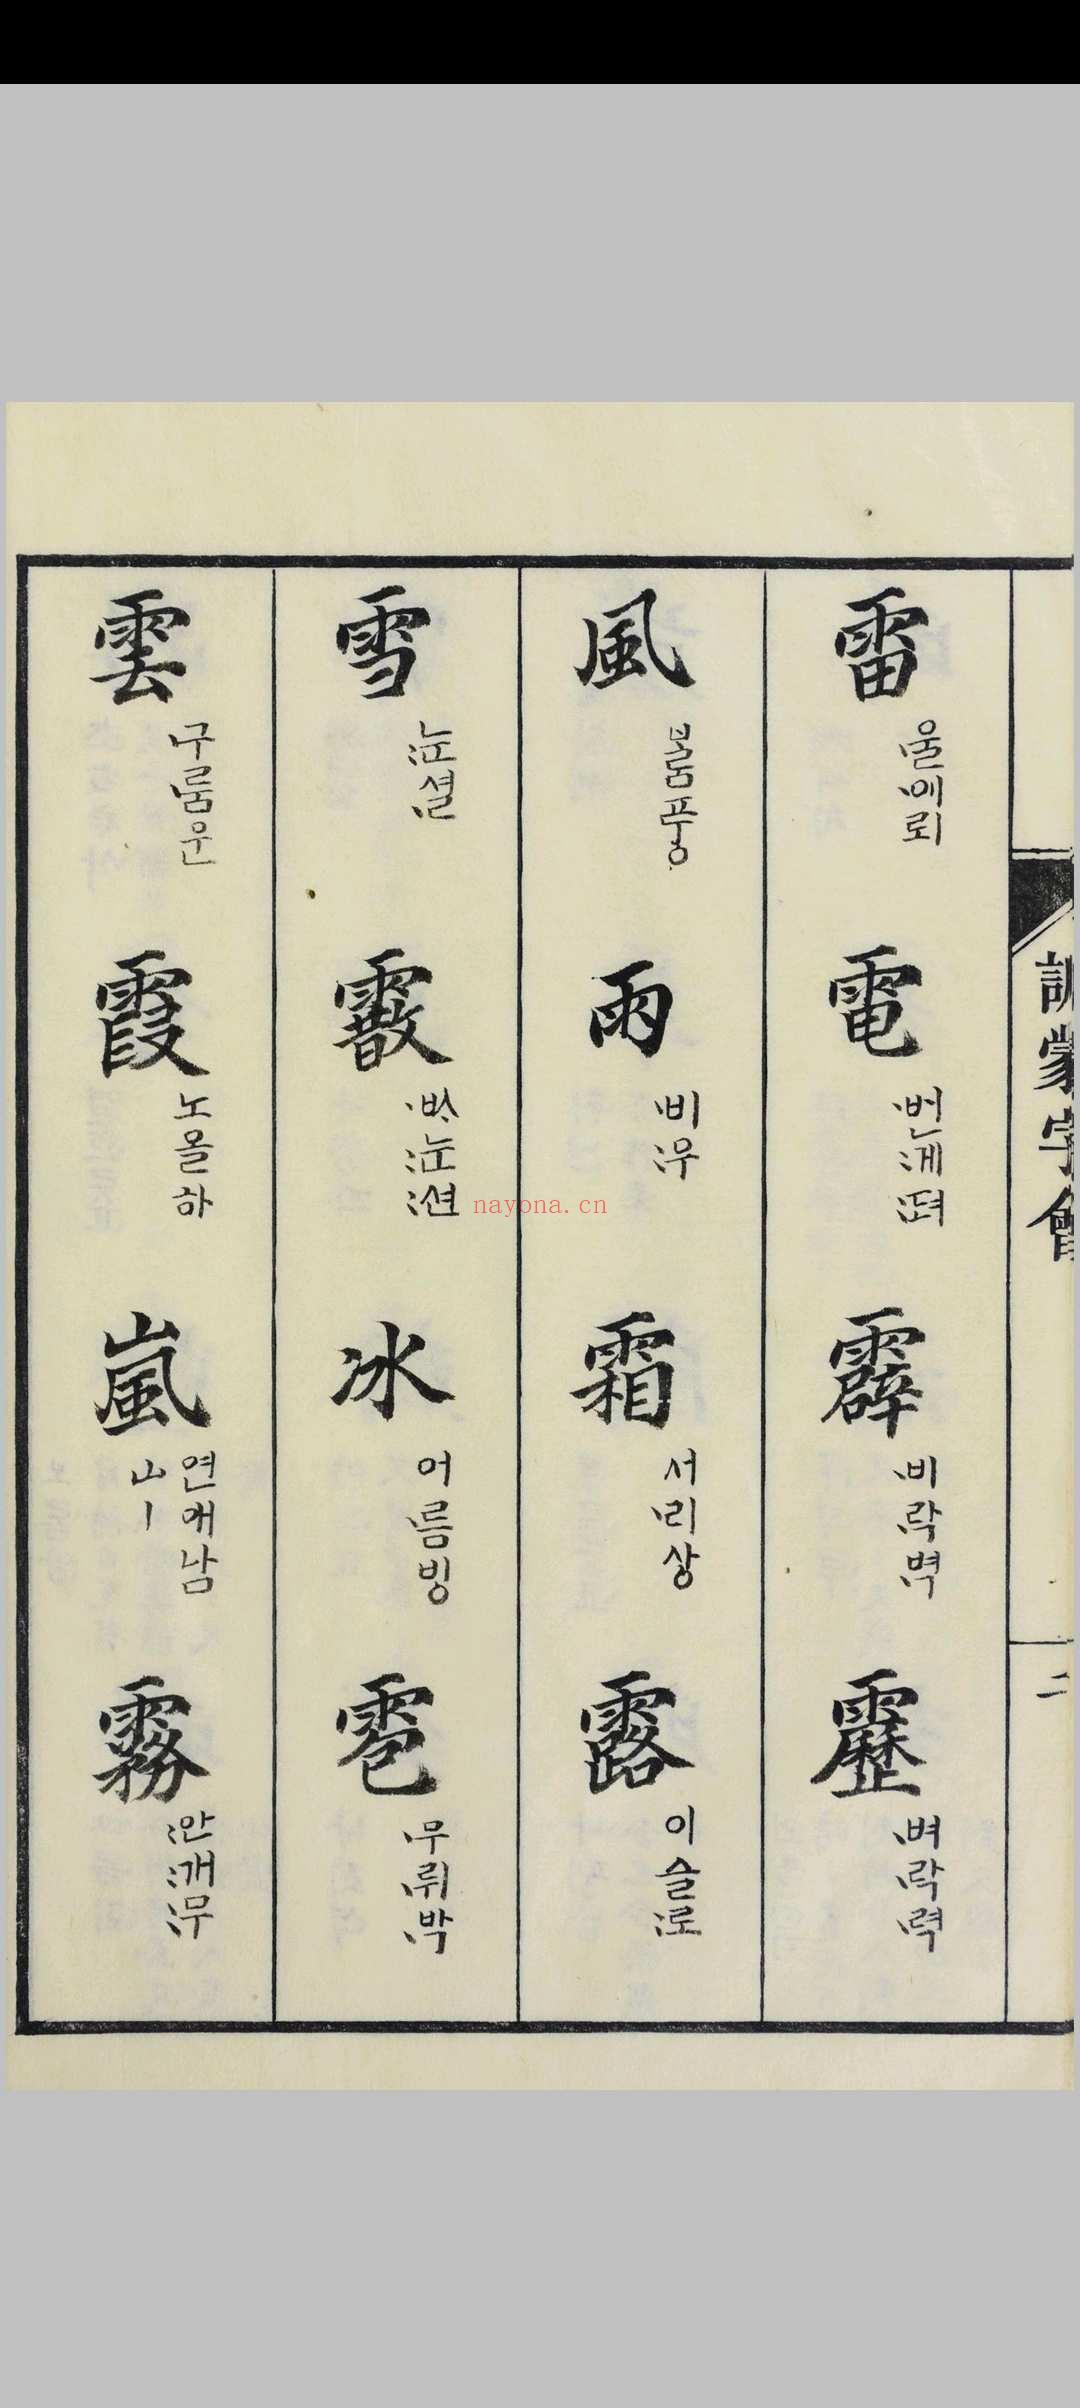 訓蒙字會
二
雷 울에뢰
電 번게뎐
霹 비락벽
靂 벼락력
風 ᄇᆞᄅᆞᆷ풍
雨 비우
霜 서리상
露 이슬로
雪 눈셜
霰 ᄡᆞ눈션
冰 어름빙
雹 무뤼박
雲 구룸운
霞 노올하
嵐 연애남 山丨
霧 안개무
nayona.cn